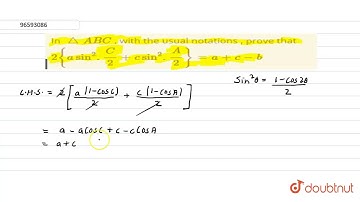 96593086
In △ ABC, with the usual notations, prove that
2{a sin² C/2 + c sin² A/2} = a + c − b
L.H.S. = 2[a(1-cosC)/2 + c(1-cosA)/2]
sin²θ = 1-cos2θ/2
= a - acosC + c - c cosA
= a+c
doubtnut